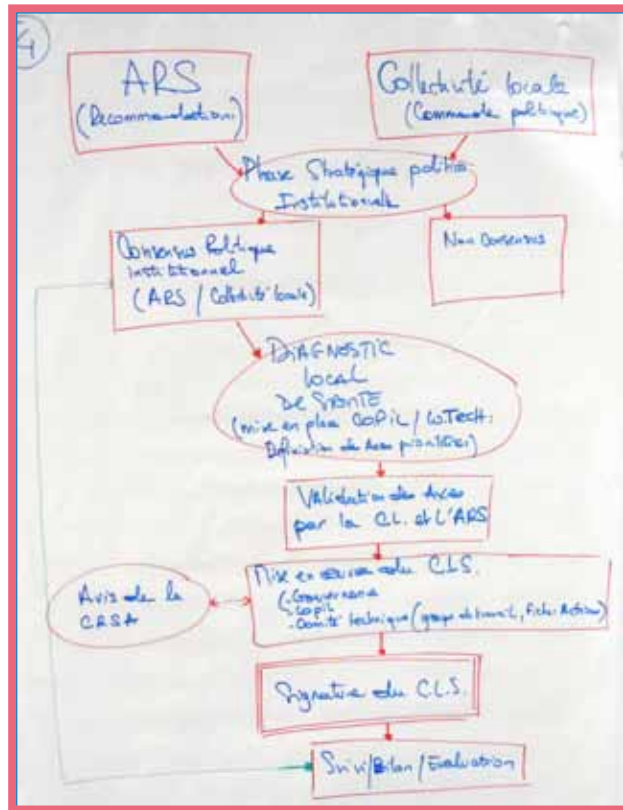 4
ARS
(Recommandation)
Collectivité locale
(Commande politique)
Phase Stratégique politico
Institutionnelle
Consensus Politique
institutionnel
(ARS / Collectivité locale)
Non Consensus
DIAGNOSTIC
LOCAL
DE SANTE
(mise en place COPIL / 
Définition des Axes prioritaires)
Validation des Axes
par la C.L. et l'ARS
Avis de la
CRSA
Mise en œuvre du C.L.S.
- Gouvernance
- Copil
- Comité technique (groupe de travail, Fiches Actions)
Signature du C.L.S.
Suivi/Bilan/Evaluation